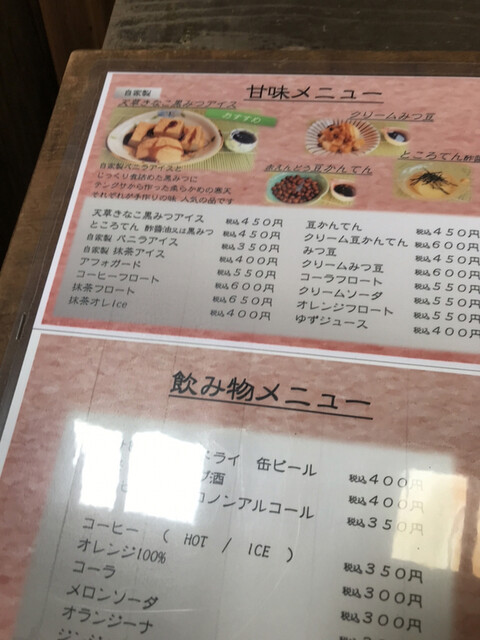 自家製
甘味メニュー
天草きなこ黒みつアイス
おすすめ
クリームみつ豆
ところてん 酢醤
赤えんどう豆かんてん
自家製バニラアイスと
じっくり煮詰めた黒みつに
テングサから作った柔らかめの寒天
それぞれが手作りの味 人気の品です
天草きなこ黒みつアイス 税込450円
ところてん 酢醤油又は黒みつ 税込450円
自家製 バニラアイス 税込350円
自家製 抹茶アイス 税込400円
アフォガード 税込550円
コーヒーフロート 税込600円
抹茶フロート 税込650円
抹茶オレIce 税込400円
豆かんてん 税込450円
クリーム豆かんてん 税込600円
みつ豆 税込450円
クリームみつ豆 税込600円
コーラフロート 税込550円
クリームソーダ 税込550円
オレンジフロート 税込550円
ゆずジュース 税込400円
飲み物メニュー
ドライ 缶ビール 税込400円
酒 税込400円
ノンアルコール 税込350円
コーヒー ( HOT / ICE ) 税込350円
オレンジ100% 税込300円
コーラ 税込300円
メロンソーダ
オランジーナ